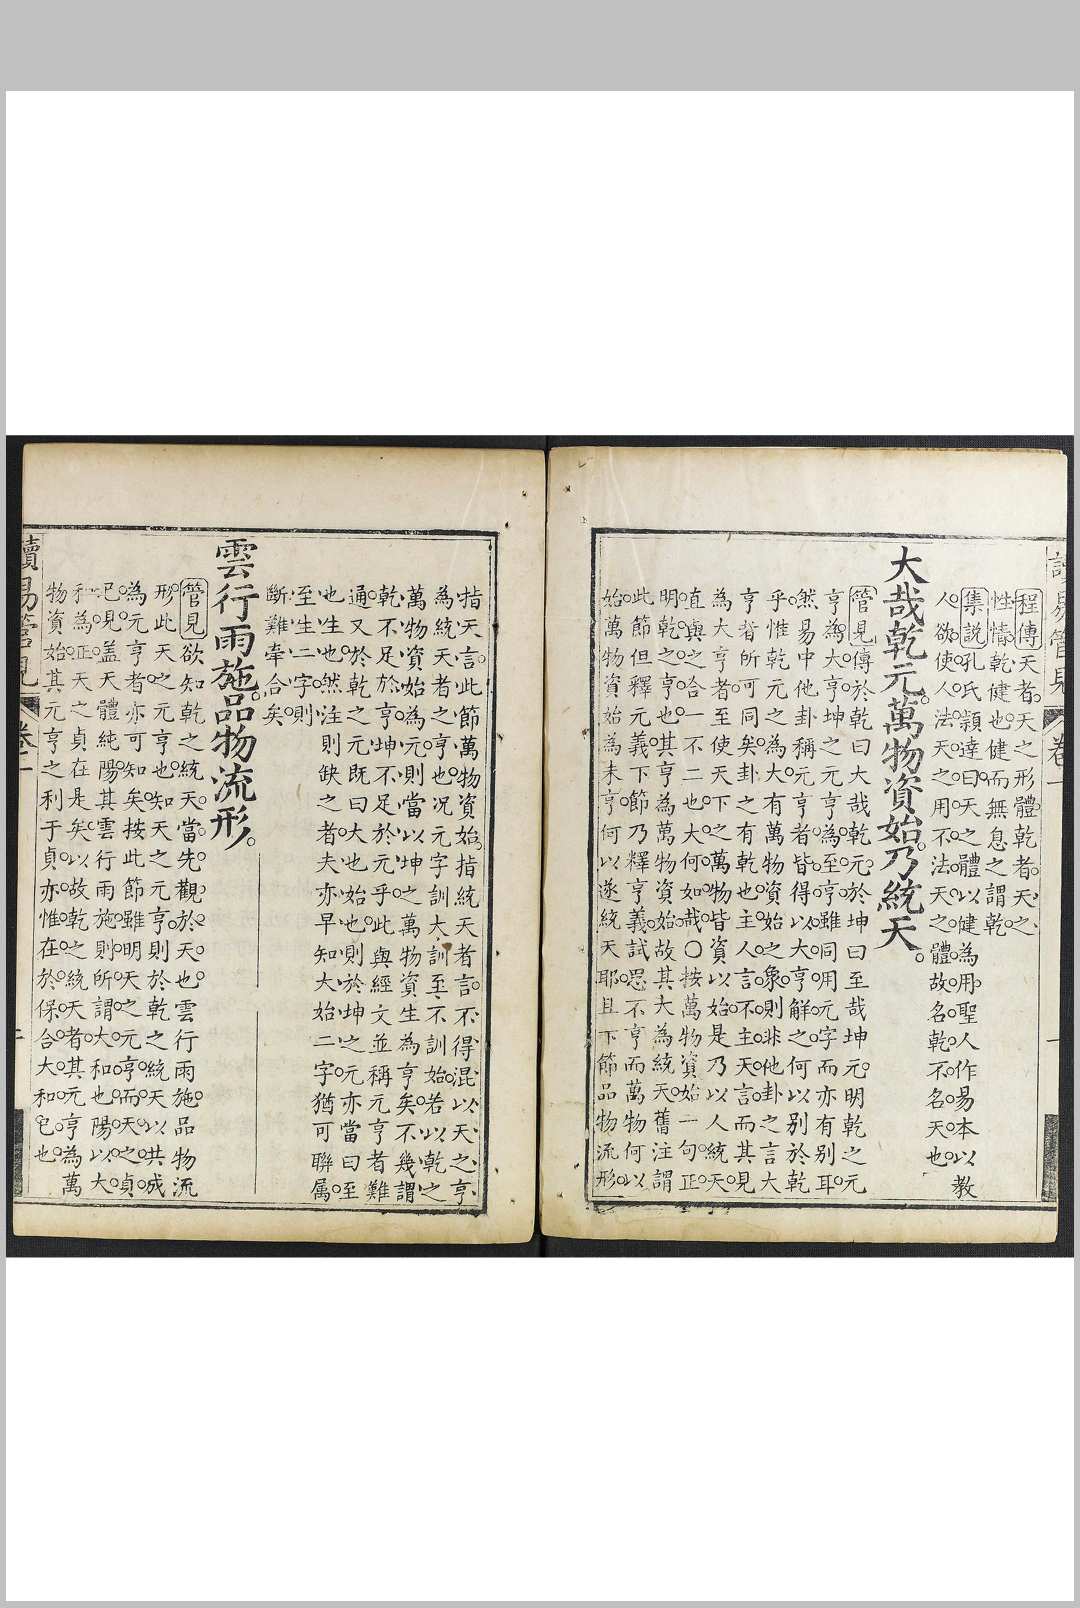 讀易管見 卷一
程傳天者天之形體乾者天之
性情乾健也健而無息之謂乾
集說孔氏穎達曰天之體以健為用聖人作易本以教
人欲使人法天之用不法天之體故名乾不名天也
大哉乾元萬物資始乃統天
管見傳於乾曰大哉乾元於坤曰至哉坤元明乾之元
亨為大亨坤之元亨為至亨雖同用元字而亦有別耳
然易中他卦稱元亨者皆得以大亨解之何以別於乾
乎惟乾元之為大有萬物資始之象則非他卦之言大
亨者所可同矣卦之有乾也主人言不主天言而其見
為大亨者至使天下之萬物皆資以始是乃以人統天
直與之合一不二也大何如哉〇按萬物資始一句正
明乾之亨也其亨為萬物資始故其大為統天舊注謂
此節但釋元義下節乃釋亨義試思不亨而萬物何以
始萬物資始為未亨何以遂統天耶且下節品物流形
指天言此節萬物資始指統天者言不得混以天之亨
為統天者之亨也况元字訓大訓至不訓始若以乾之
萬物資始為元則當以坤之萬物資生為亨矣不幾謂
乾不足於亨坤不足於元乎此與經文並稱元亨者難
通又於乾之元既曰大也始也則於坤之元亦當曰至
也生也然注則缺之者夫亦早知大始二字猶可聯属
至生二字則
斷難牽合矣
雲行雨施品物流形
管見欲知乾之統天當先觀於天也雲行雨施品物流
形此天之元亨也知天之元亨則於乾之統天以共成
為元亨者亦可知矣按此節雖明天之元亨而天之貞
已見盖天體純陽其雲行雨施則所謂大和也陽以大
和為正天之貞在是矣以故乾之統天者其元亨為萬
物資始其元亨之利于貞亦惟在於保合大和已也
讀易管見 卷一